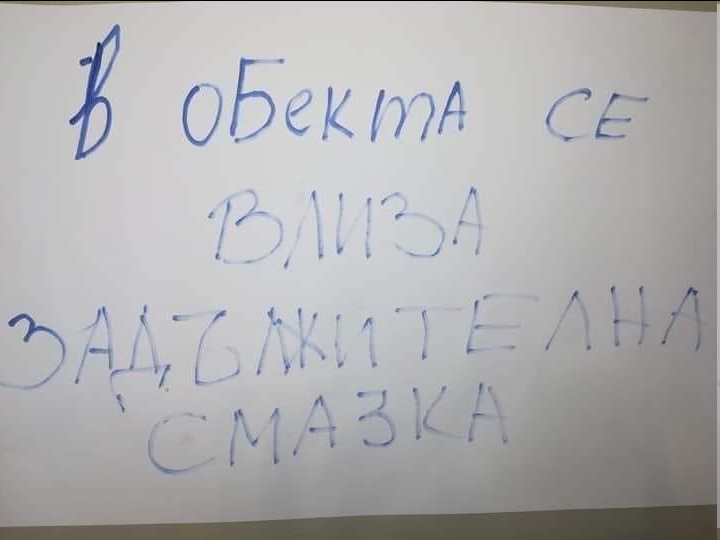 В ОБектА СЕ
ВЛИЗА
ЗАДЪЛЖИТЕЛНА
СМАЗКА